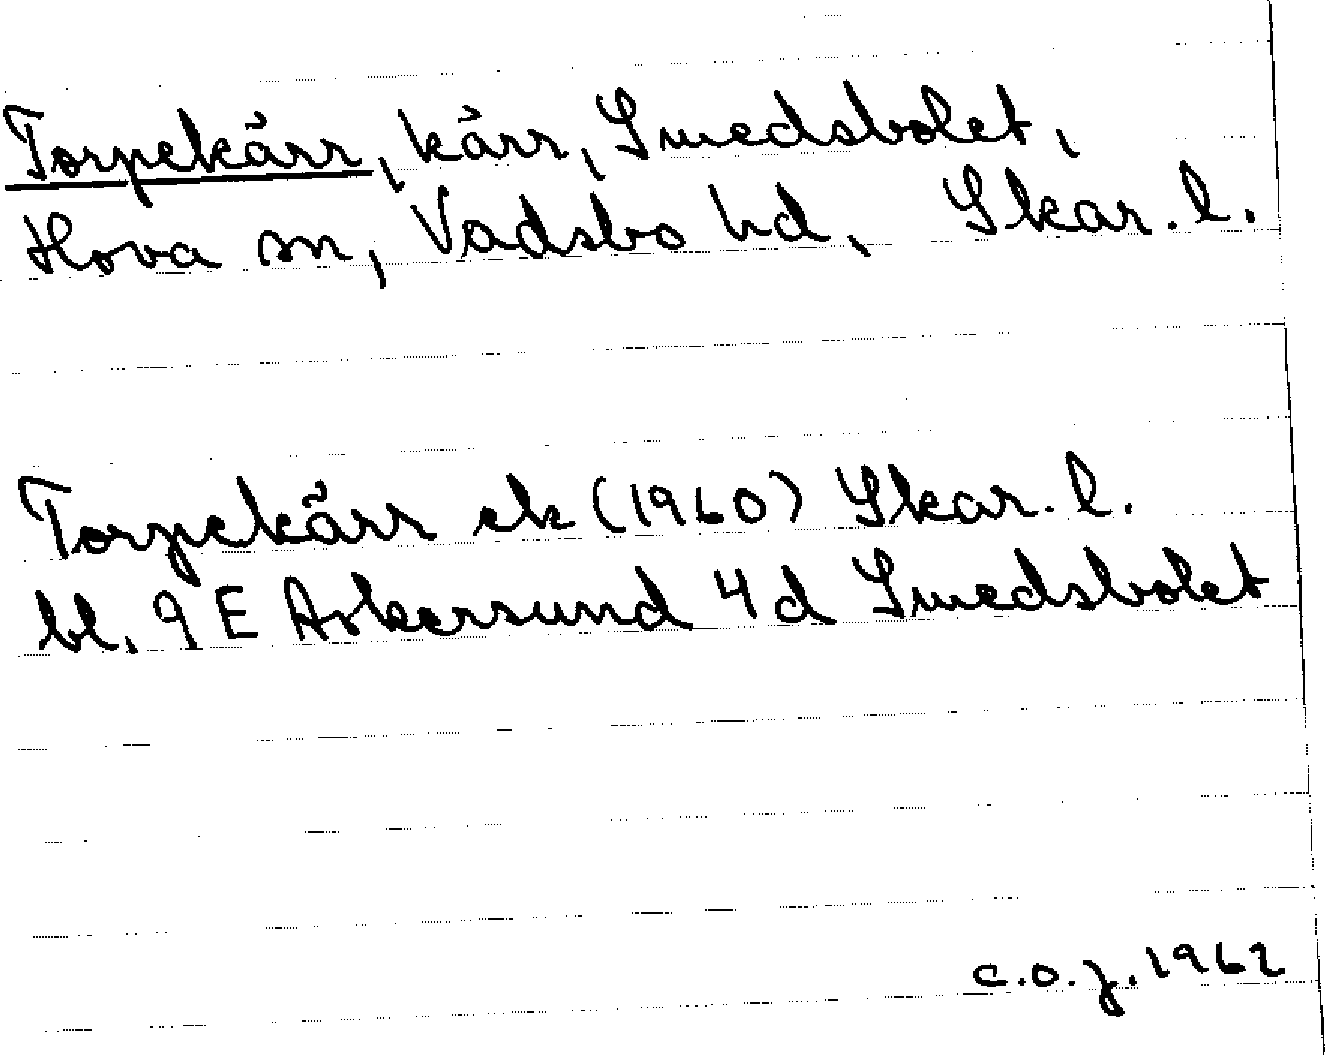 Torpekärr, kärr, Smedsbolet,
Hova sn, Vadsbo hd, Skar. l.
Torpekärr ek (1960) Skar. l.
bl. 9 E Askersund 4d Smedsbolet
C.O.J. 1962